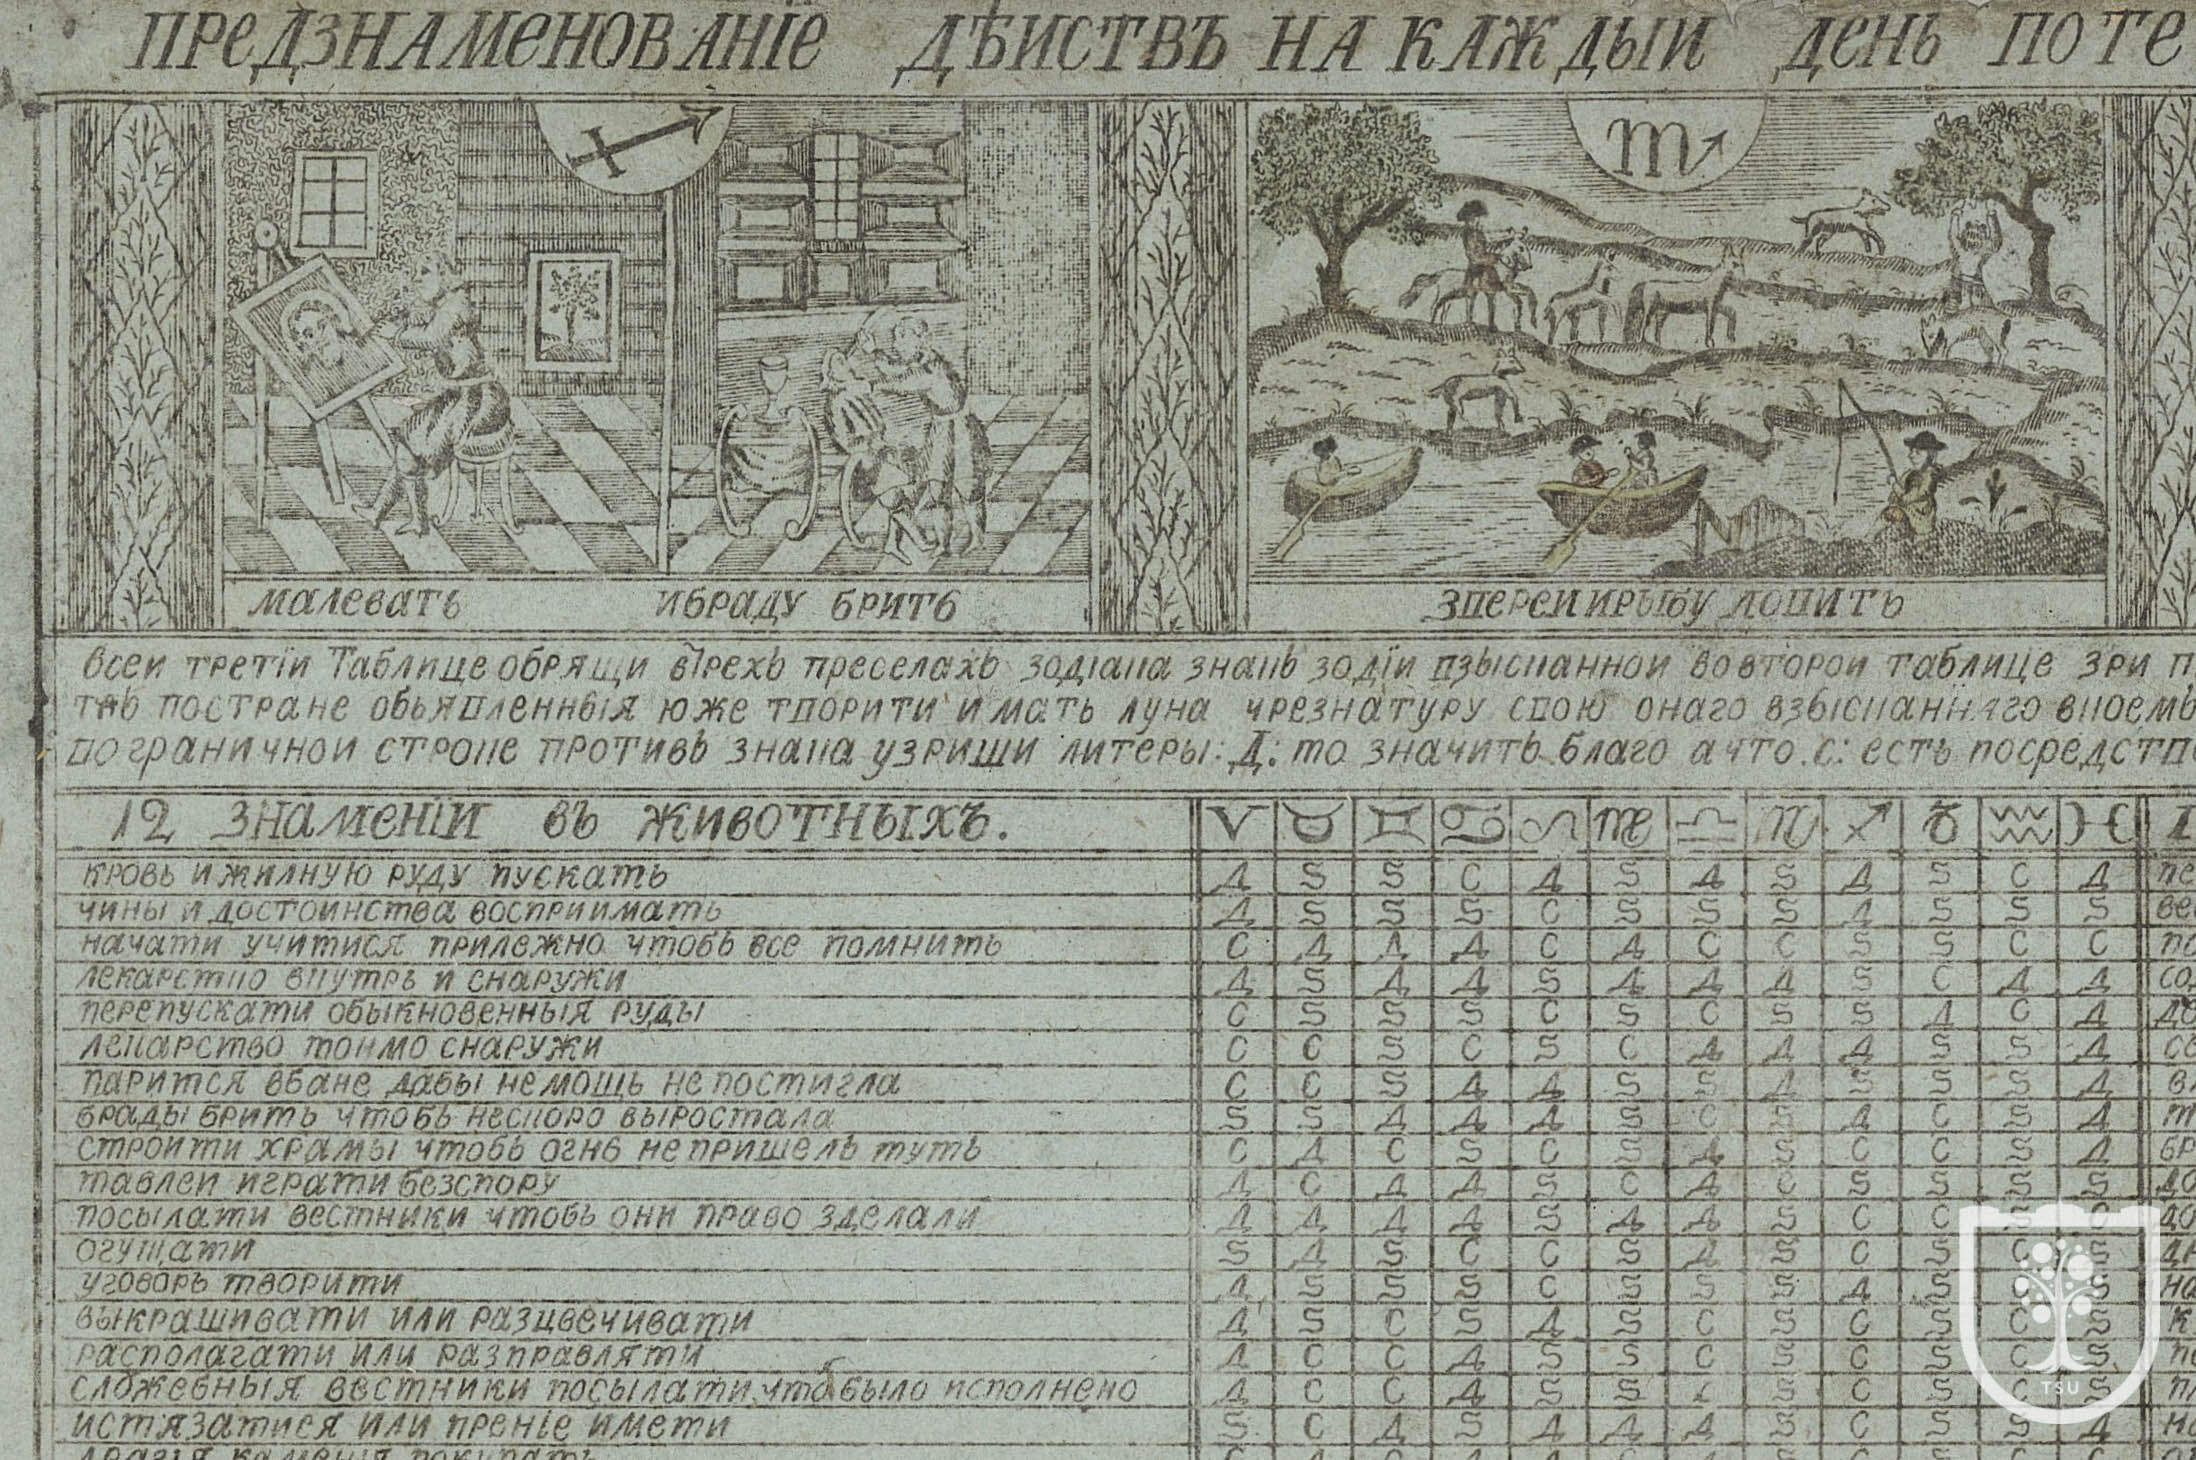 ПРЕДЗНАМЕНОВАНІЕ ДѢИСТВЪ НА КАЖДЫИ ДЕНЬ ПО ТЕ
МАЛЕВАТЬ ИБРАДУ БРИТЬ
ЗВЕРЕИ ИРЫБУ ЛОВИТЬ
всеи третїи Таблице обрящи втрехъ преселахъ зодіака знакъ зодїи взысканнои вовторои таблице зри п
постране обьявленныя юже творити имать луна чрезнатуру свою онаго взысканнаго вкоемь
пограничнои строке противь знака узриши литеры: Д: то значить благо ачто .С: есть посредств
12 ЗНАМЕНІИ ВЪ ЖИВОТНЫХЪ. ♈ ♉ ♊ ♋ ♌ ♍ ♎ ♏ ♐ ♑ ♒ ♓
кровь и жилную руду пускать Д S S С Д S Д S Д S С Д пе
чины и достоинства восприимать Д S S S С S S S Д S S S ве
начати учитися прилежно чтобь все помнить С Д Д Д С Д С С S S С С по
лекарство внутрь и снаружи Д S Д Д S Д Д Д S С Д Д со
перепускати обыкновенныя руды С S S S С S С S S Д С Д до
лекарство токмо снаружи С С S С S С Д Д Д S S Д св
парится вбане дабы немощь не постигла С С S Д Д S S Д S S S Д вл
брады брить чтобь неспоро выростала S S Д Д Д S С S Д С S Д т
строити храмы чтобь огнь не пришель туть С Д С S С S Д S С С S Д бр
тавлеи играти безспору Д С Д Д S С Д С S S S S до
посылати вестники чтобь они право зделали Д Д Д Д S Д Д S С С S С до
огущати S Д S С С S Д S С S С S др
уговорь творити Д S S S С S S S Д S С S на
выкрашивати или разцвечивати Д S С S Д S С S С S С S к
располагати или разправляти Д С С Д S S С S С S С S пе
служебныя вестники посылати что б было исполнено Д С С Д S S С S С S С S пл
истязатися или преніе имети S С Д S Д Д Д S С S S Д на
драгія каменія покупать
TSU